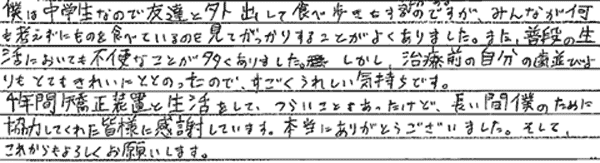 僕は中学生なので友達と外出して食べ歩きをするのですが、みんなが何
も考えずにものを食べているのを見てがっかりすることがよくありました。また、普段の生
活においても不便なことが多くありました。しかし、治療前の自分の歯並びよ
りもとてもきれいにととのったので、すごくうれしい気持ちです。
4年間矯正装置と生活をして、つらいこともあったけど、長い間僕のために
協力してくれた皆様に感謝しています。本当にありがとうございました。そして、
これからもよろしくお願いします。